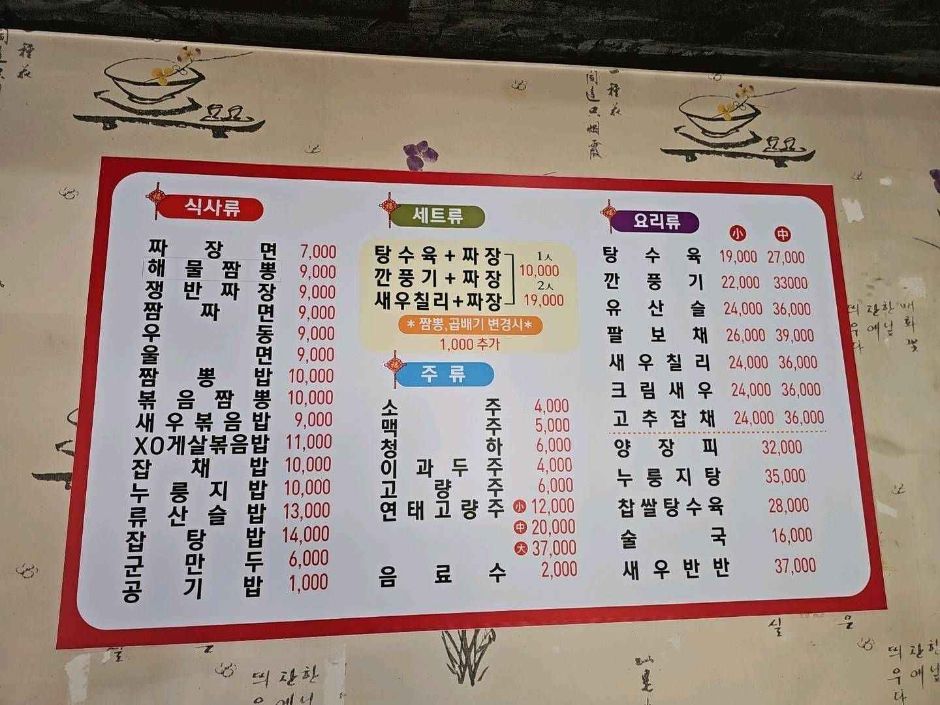 식사류
짜장면 7,000
해물짬뽕 9,000
쟁반짜장 9,000
짬짜면 9,000
우동 9,000
울면 9,000
짬뽕밥 10,000
볶음짬뽕 10,000
새우볶음밥 9,000
XO게살볶음밥 11,000
잡채밥 10,000
누룽지밥 10,000
류산슬밥 13,000
잡탕밥 14,000
군만두 6,000
공기밥 1,000
세트류
탕수육+짜장 1人
깐풍기+짜장 10,000
2人
새우칠리+짜장 19,000
*짬뽕,곱배기 변경시*
1,000 추가
주류
소주 4,000
맥주 5,000
청하 6,000
이과두주 4,000
고량주 6,000
연태고량주 小 12,000
中 20,000
大 37,000
음료수 2,000
요리류 小 中
탕수육 19,000 27,000
깐풍기 22,000 33000
유산슬 24,000 36,000
팔보채 26,000 39,000
새우칠리 24,000 36,000
크림새우 24,000 36,000
고추잡채 24,000 36,000
양장피 32,000
누룽지탕 35,000
찹쌀탕수육 28,000
술국 16,000
새우반반 37,000